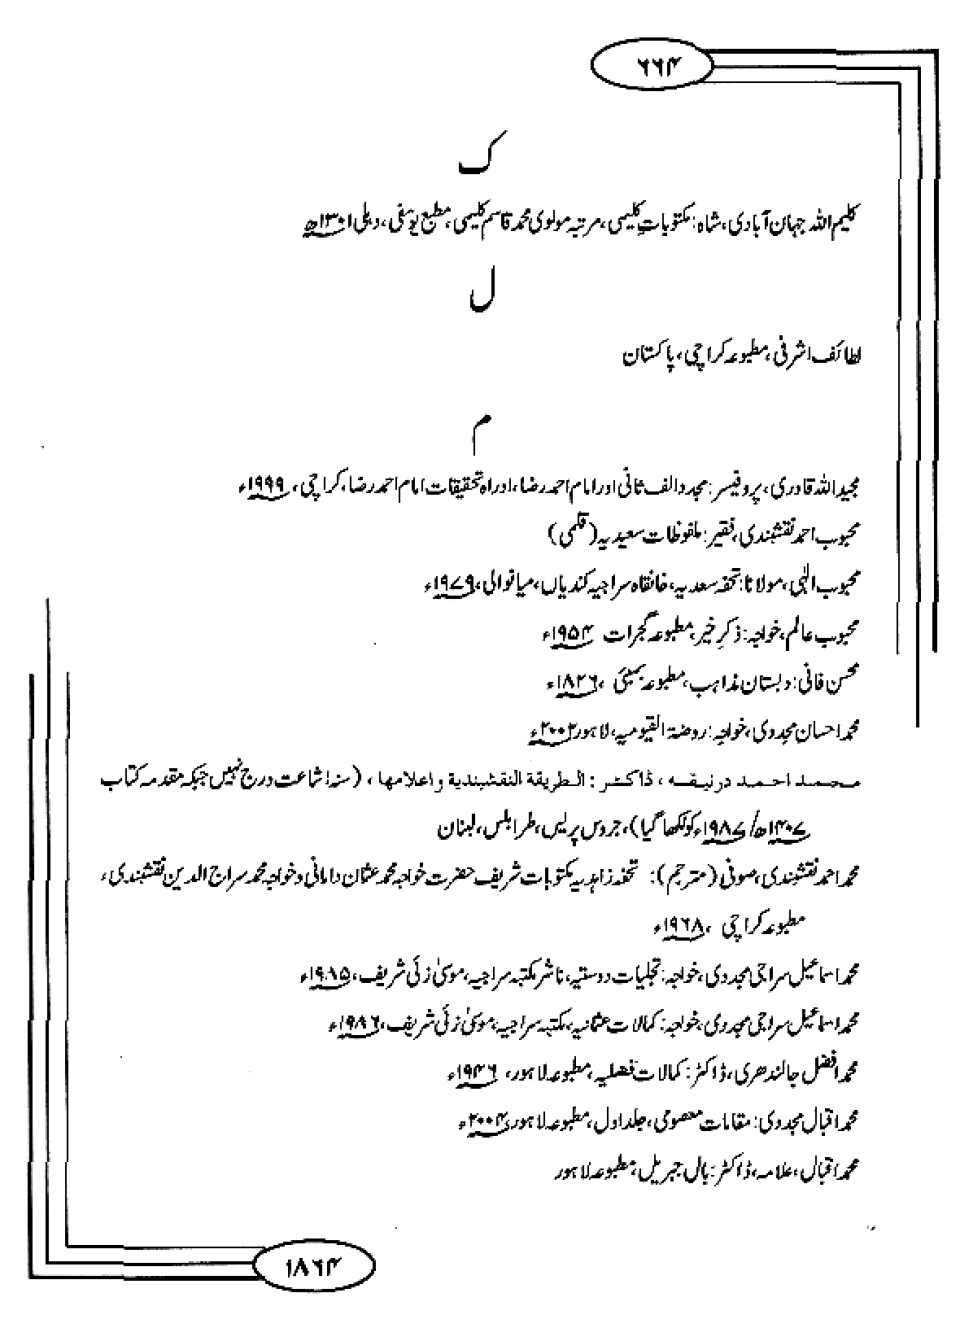 ۶۶۴
ک
کلیم اللہ جہان آبادی، شاہ: مکتوباتِ کلیمی، مرتبہ مولوی محمد قاسم کلیمی، مطبع یوسفی، دہلی ۱۳۰۱ھ
ل
لطائف اشرفی، مطبوعہ کراچی، پاکستان
م
مجید اللہ قادری، پروفیسر: مجدد الف ثانی اور امام احمد رضا، ادارہ تحقیقات امام احمد رضا، کراچی، ۱۹۹۹ء
محبوب احمد نقشبندی، فقیر: ملفوظات سعیدیہ (قلمی)
محبوب الٰہی، مولانا: تحفہ سعدیہ، خانقاہ سراجیہ کندیاں، میانوالی، ۱۹۷۹ء
محبوب عالم، خواجہ: ذکرِ خیر، مطبوعہ گجرات ۱۹۵۴ء
محسن فانی: دبستان مذاہب، مطبوعہ بمبئی، ۱۸۲۶ء
محمد احسان مجددی، خواجہ: روضۃ القیومیہ، لاہور ۲۰۰۲ء
محمد احمد درنیقہ، ڈاکٹر: الطريقة النقشبندية و اعلامها، (سنہ اشاعت درج نہیں جبکہ مقدمہ کتاب
۱۴۰۷ھ/۱۹۸۷ء کو لکھا گیا)، جروس پریس، طرابلس، لبنان
محمد احمد نقشبندی، صوفی (مترجم): تحفہ زاہدیہ مکتوبات شریف حضرت خواجہ محمد عثمان دامانی و خواجہ محمد سراج الدین نقشبندی،
مطبوعہ کراچی، ۱۹۶۸ء
محمد اسماعیل سراجی مجددی، خواجہ: تجلیات دوستیہ، ناشر مکتبہ سراجیہ، موسیٰ زئی شریف، ۱۹۸۵ء
محمد اسماعیل سراجی مجددی، خواجہ: کمالات عثمانیہ، مکتبہ سراجیہ، موسیٰ زئی شریف، ۱۹۸۶ء
محمد افضل جالندھری، ڈاکٹر: کمالات فضلیہ، مطبوعہ لاہور، ۱۹۴۶ء
محمد اقبال مجددی: مقامات معصومی، جلد اول، مطبوعہ لاہور، ۲۰۰۴ء
محمد اقبال، علامہ، ڈاکٹر: بال جبریل، مطبوعہ لاہور
۱۸۶۴